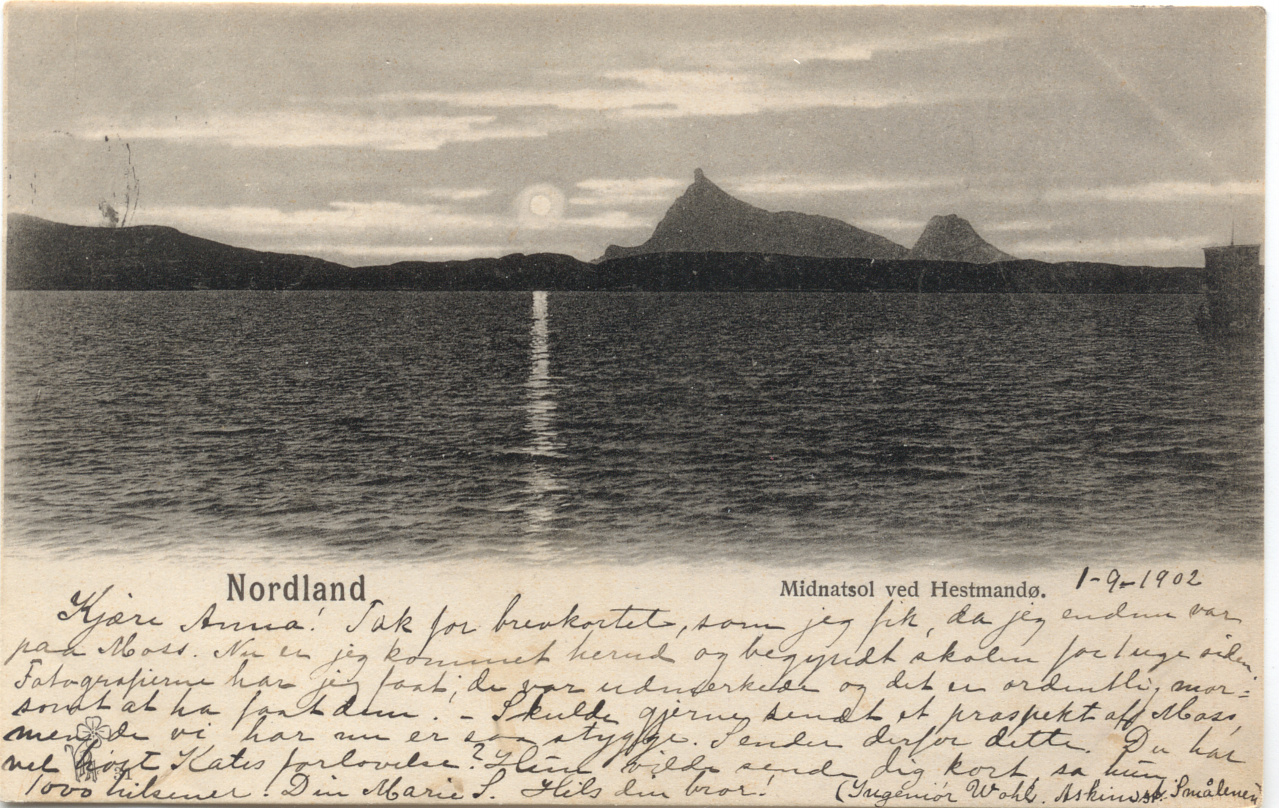 Nordland
Midnatsol ved Hestmandø.
1-9-1902
Kjære Anna! Tak for brevkortet, som jeg fik, da jeg endnu var
paa Moss. Nu er jeg kommet herud og begyndt skolen for 1 uge siden
Fotografierne har jeg faat; de var udmerkede og det er ordentlig mor=
somt at ha faat dem. - Skulde gjerne sendt et prospekt af Moss,
men de vi har nu er saa stygge. Sender derfor dette. Du har
vel hørt Kates forlovelse? Hun vilde sende dig kort, sa hun.
1000 hilsener. Din Marie S. Hils din bror!
(Ingeniør Wohl, Askim st. Smålenene
31